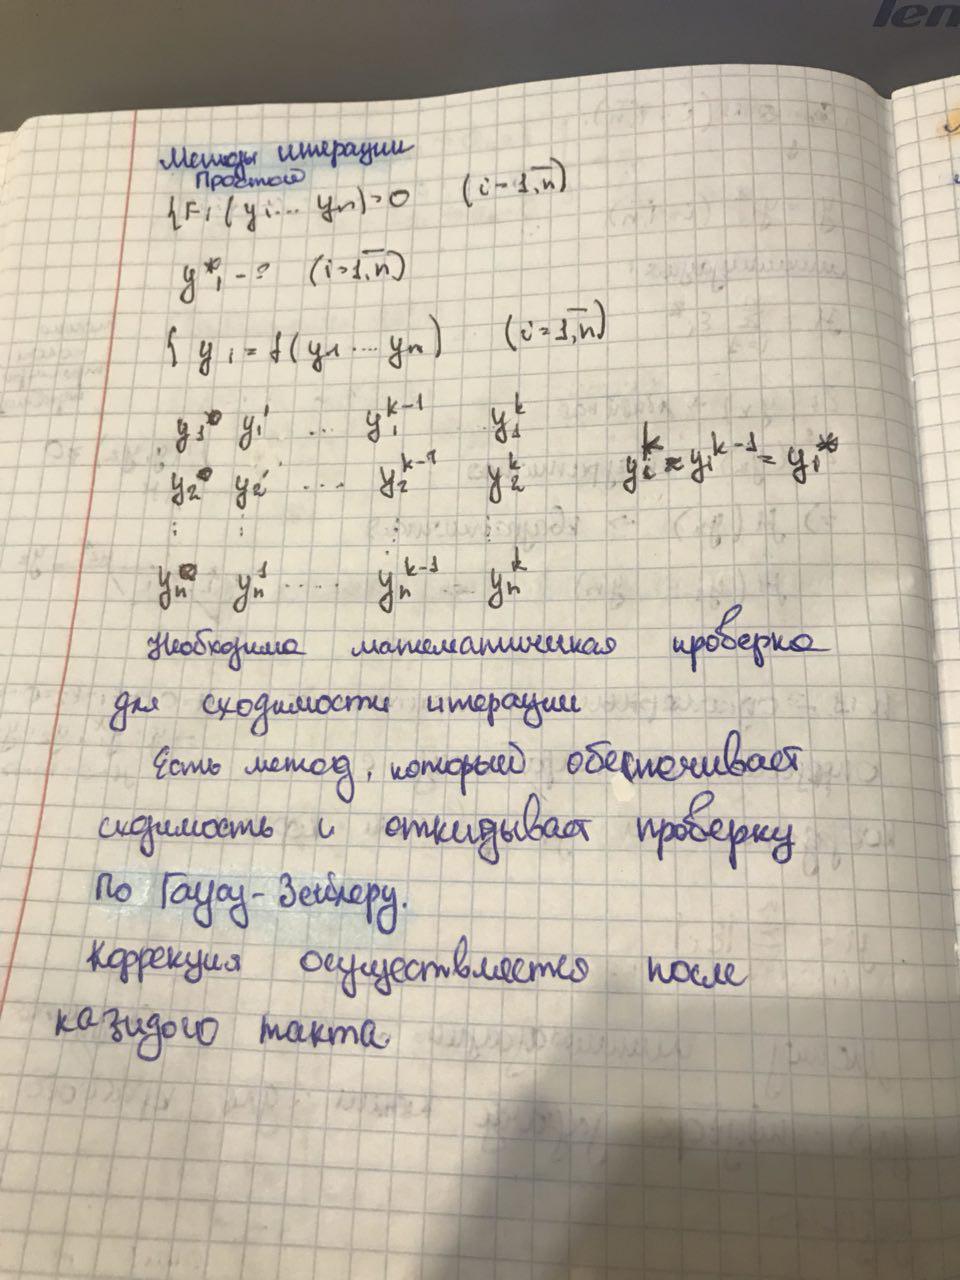 len
Методы итерации
Простой
{Fi (yi... yn)=0 (i-1,n̅)
y*i -? (i=1,n̅)
{ yi = f(y1 .... yn) (i=1,n̅)
y1⁰ y1¹ ... y1^k-1 y1^k
y2⁰ y2¹ .... y2^k-1 y2^k yi^k ≈ yi^k-1 = yi*
⋮ ⋮ ⋮ ⋮
yn⁰ yn¹ ..... yn^k-1 yn^k
Необходима математическая проверка
для сходимости итерации
Есть метод, который обеспечивает
сходимость и откидывает проверку
По Гаусу-Зейлеру.
Коррекция осуществляется после
каждого такта.